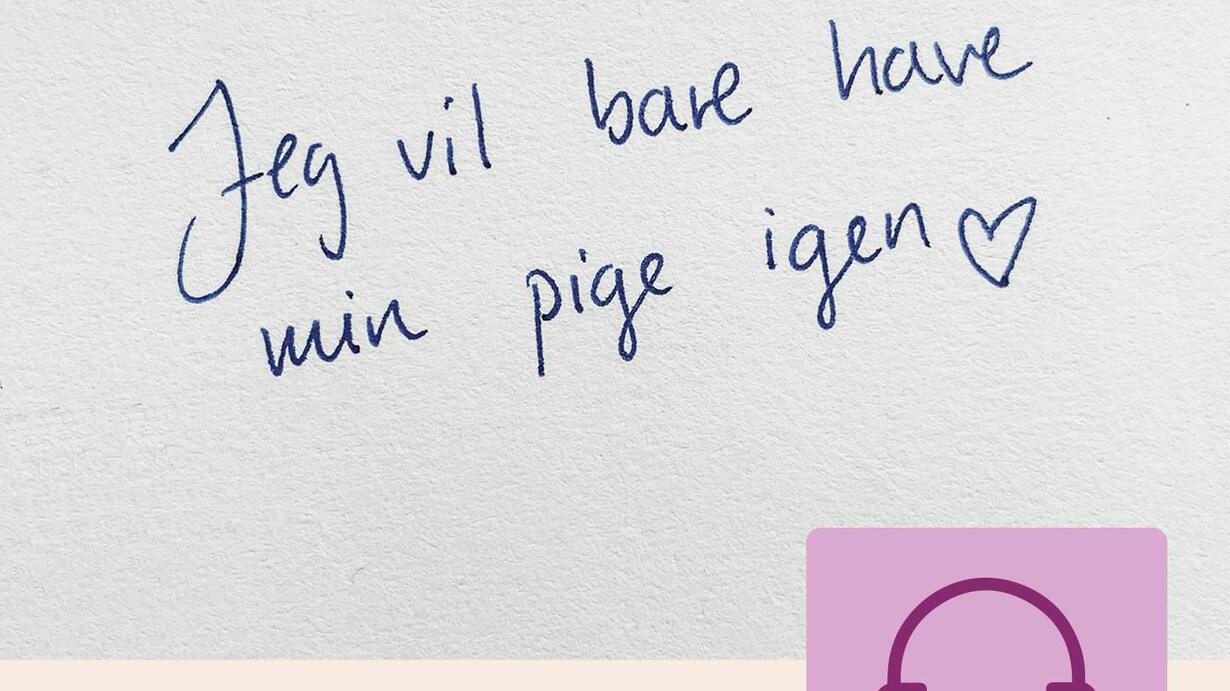 Jeg vil bare have
min pige igen♡